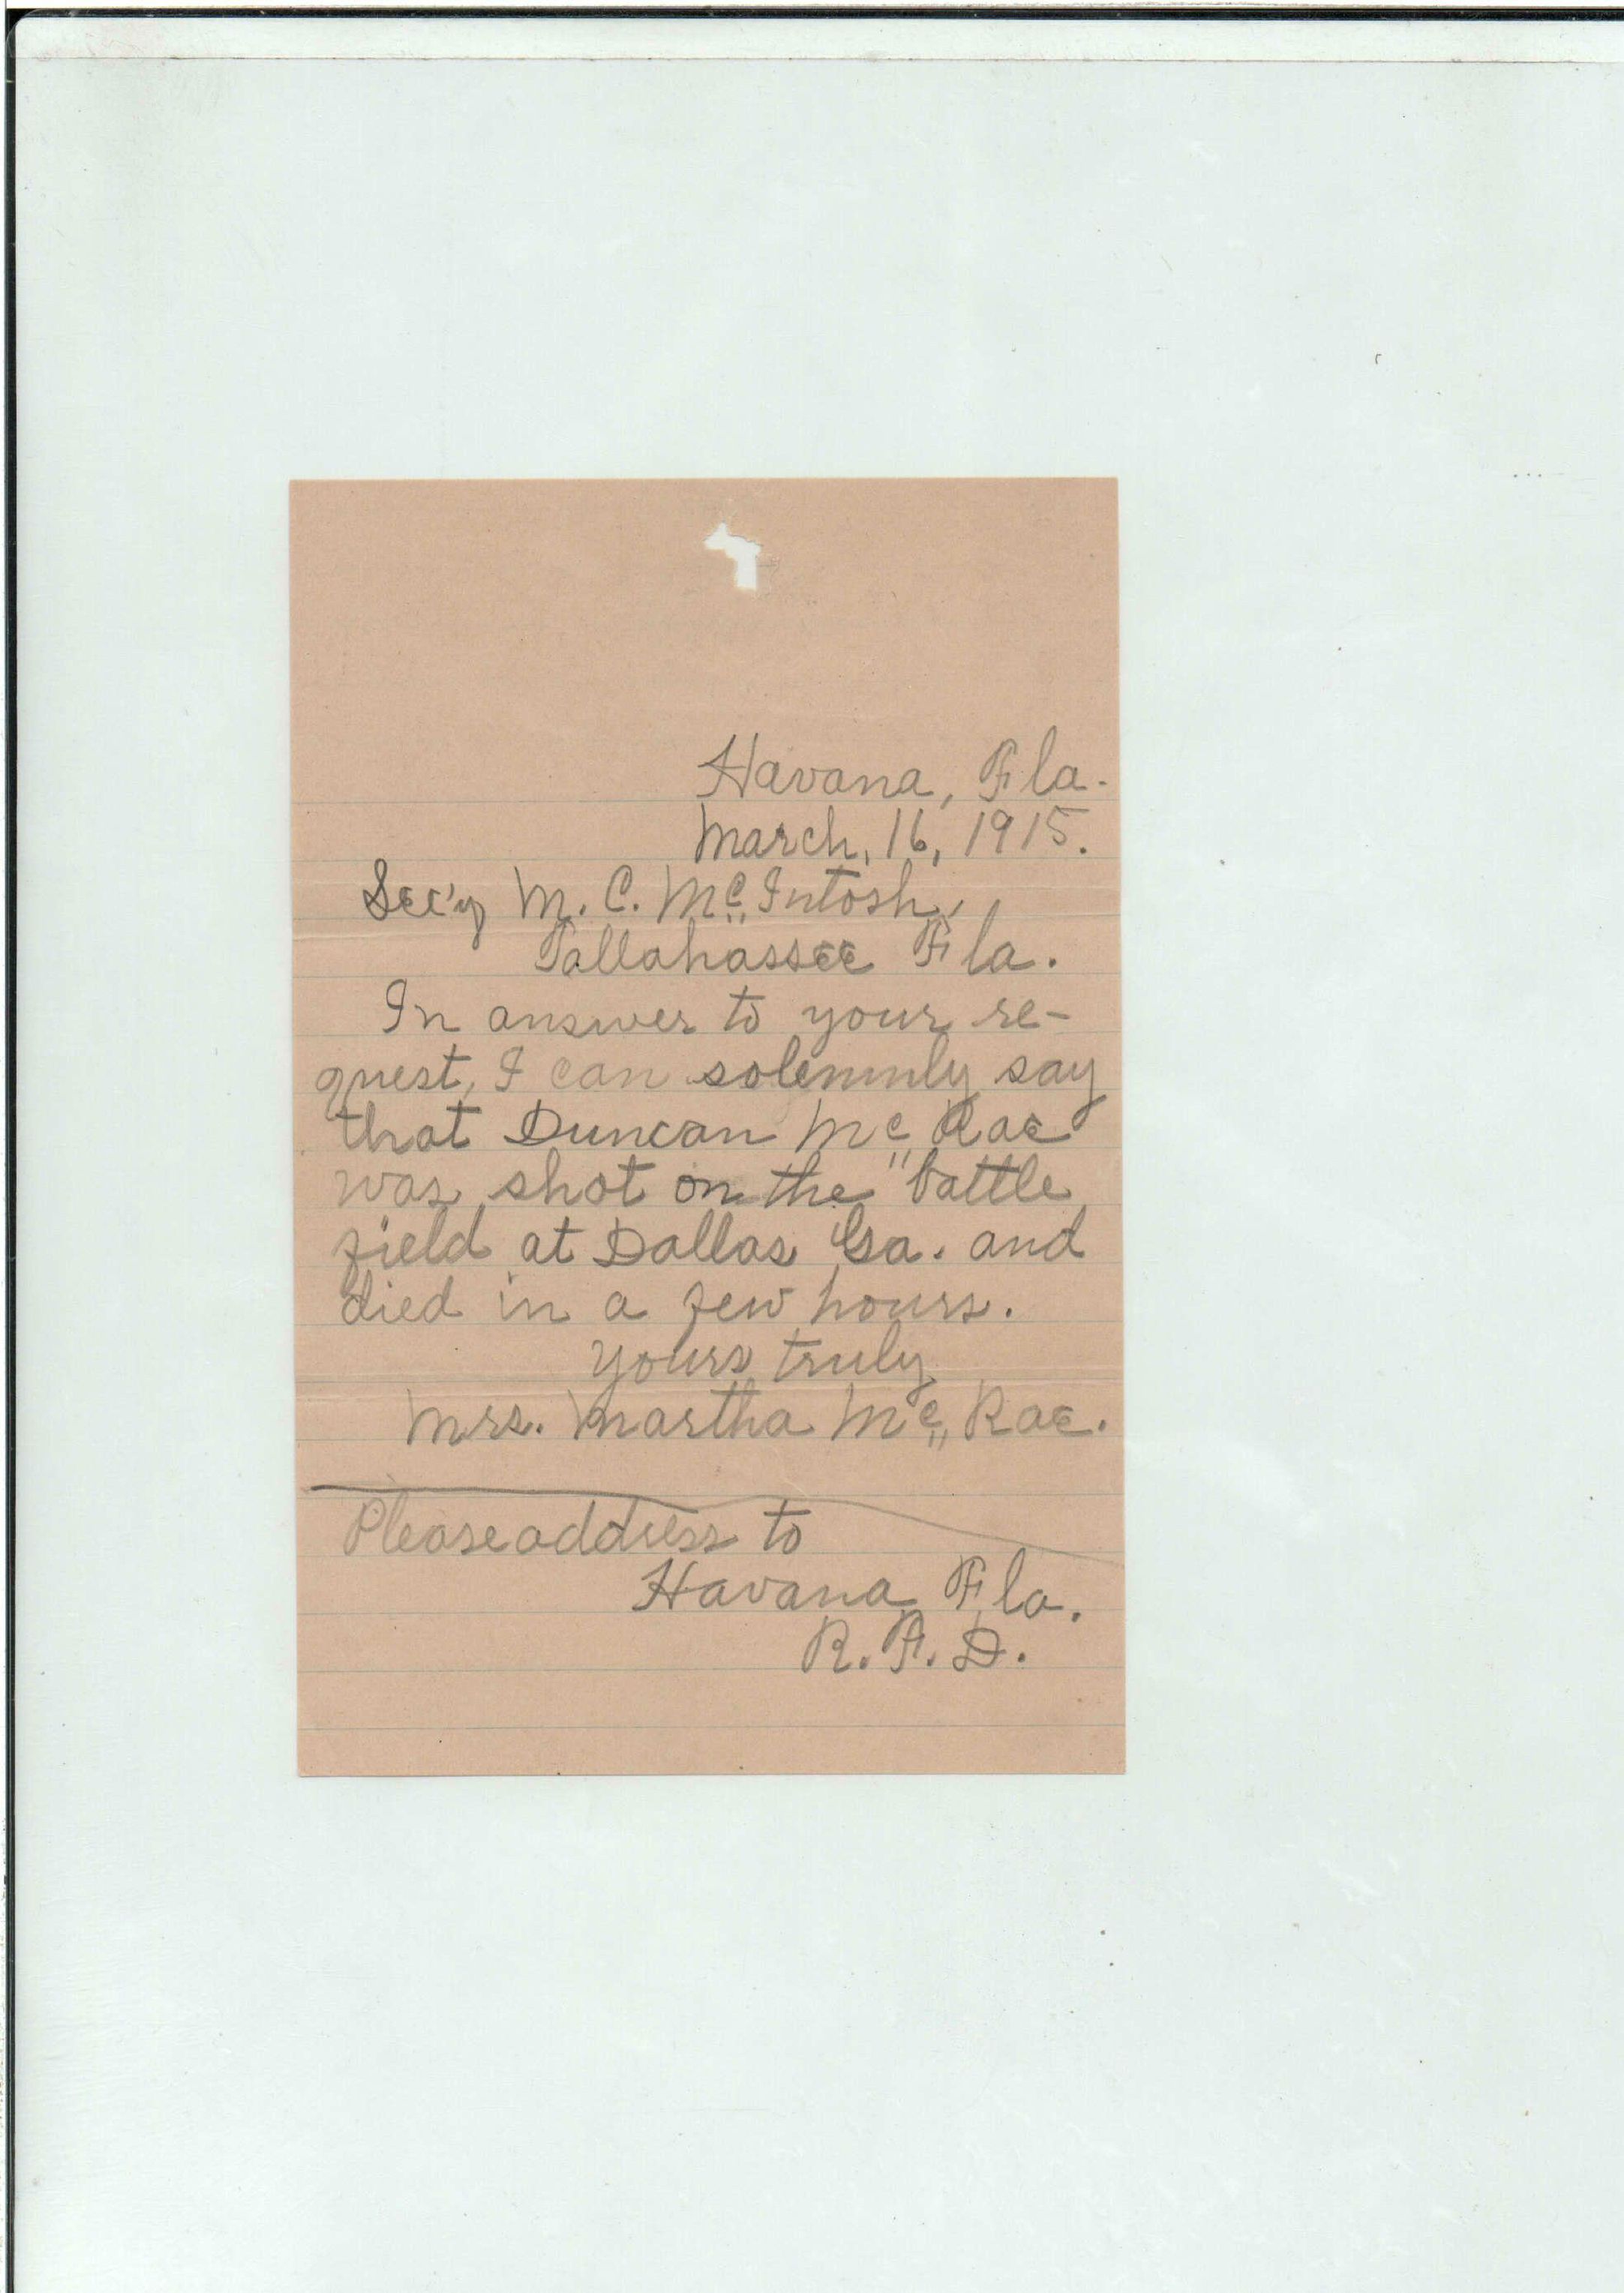 Havana, Fla.
March, 16, 1915.
Sec'y M. C. McIntosh,
Tallahassee Fla.
In answer to your re-
quest, I can solemnly say
that Duncan Mc Rae
was shot on the battle
field at Dallas Ga. and
died in a few hours.
Yours truly
Mrs. Martha Mc Rae.
Please address to
Havana Fla.
R. F. D.